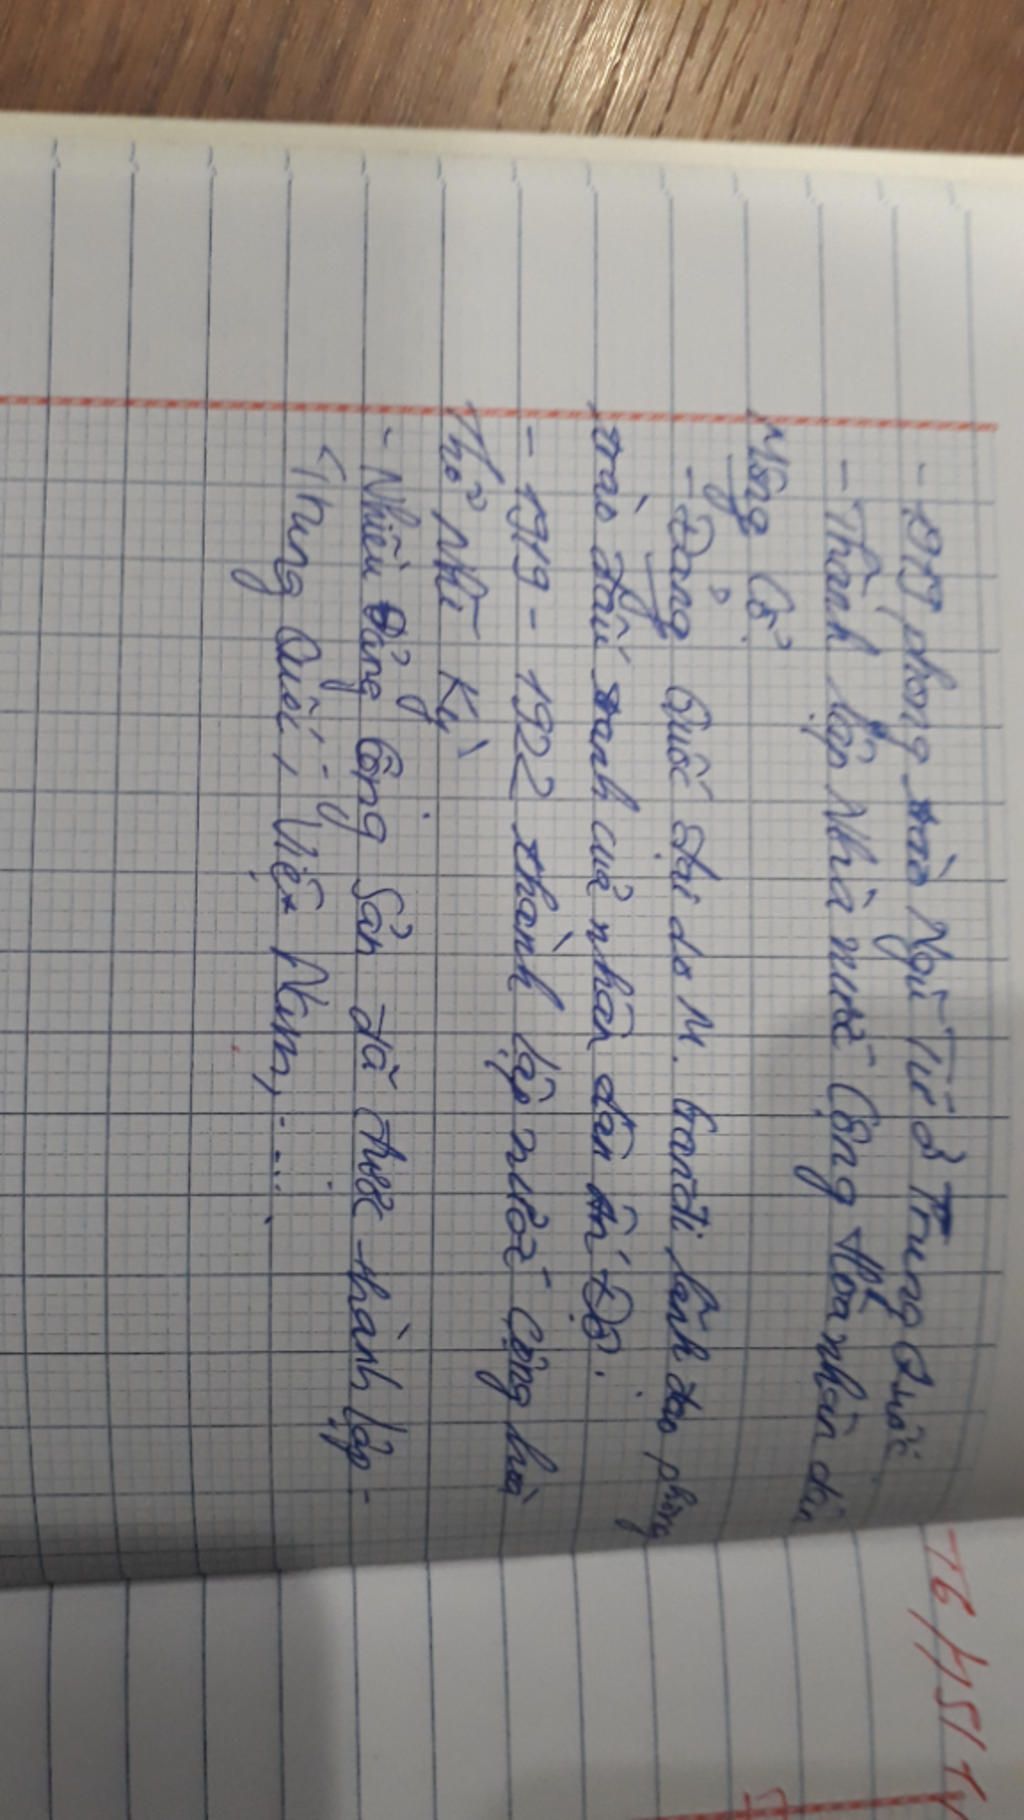 - phong trào Ngũ Tứ ở Trung Quốc
- Thành lập Nhà nước Cộng Hòa nhân dân
Mông Cổ
- Đảng Quốc đại do M. Gandi lãnh đạo phong
trào đấu tranh của nhân dân Ấn Độ.
- 1919 - 1922 thành lập nước Cộng hòa
Thổ Nhĩ Kỳ
- Nhiều Đảng Cộng Sản đã được thành lập -
Trung Quốc, Việt Nam, ....